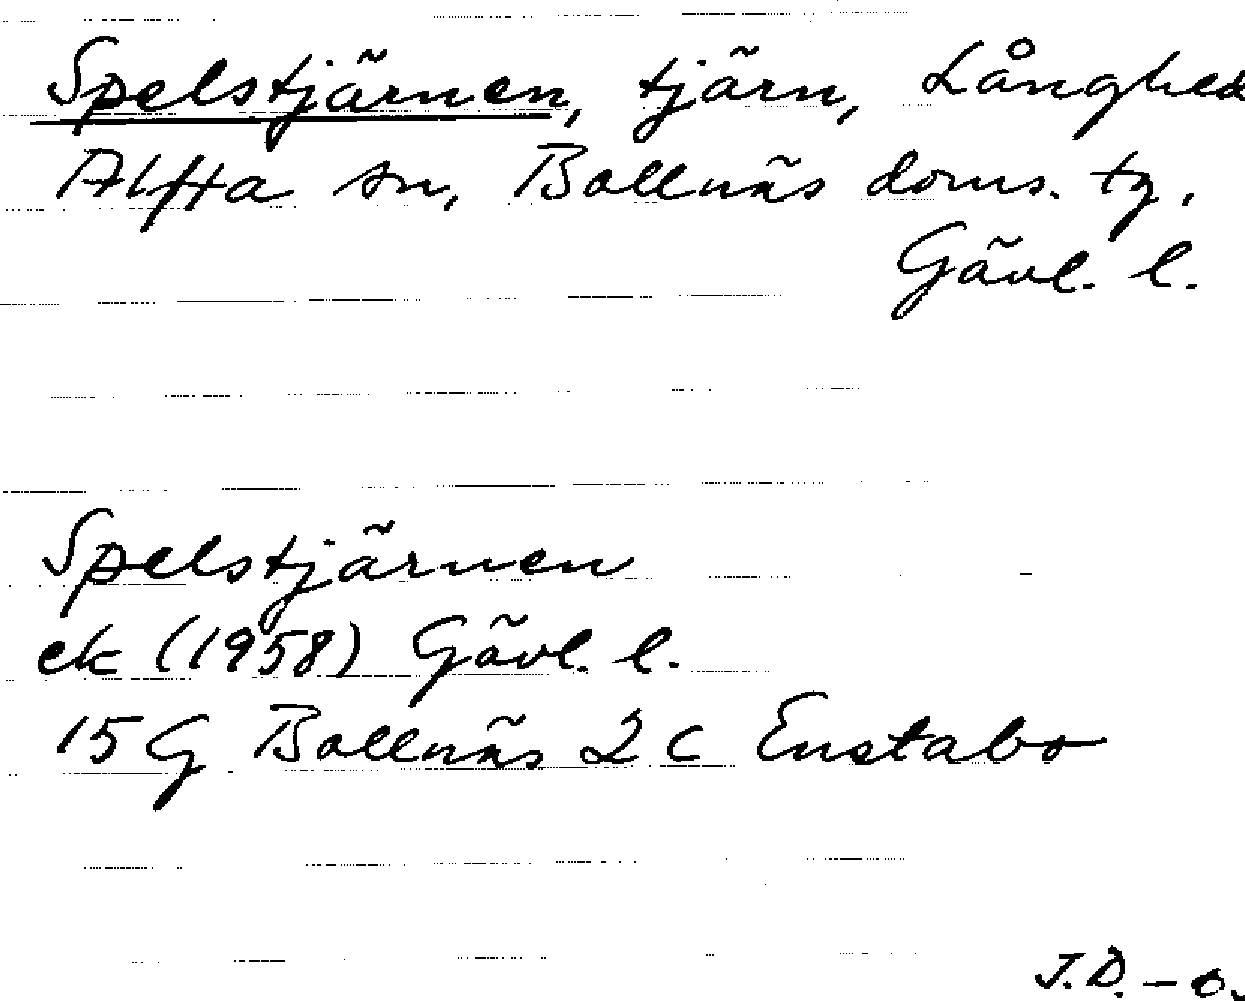 Spelstjärnen, tjärn, Långhed
Alfta sn, Bollnäs doms. tg,
Gävl. l.
Spelstjärnen
ek (1958) Gävl. l.
15 G Bollnäs 2 c Enstabo
J.D. - o.